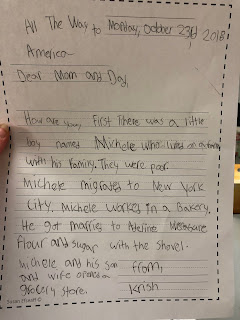 All The Way to Monday, October 23rd 2018
America—
Dear Mom and Dad,
How are you, First There was a little
boy named Michele who lived on a
with his Family. They were poor.
Michele migrates to New York
City. Michele works in a Bakery.
He got married to
Flour and sugar with the shovel.
Michele and his son
and wife opened a
grocery store.
From,
Krish